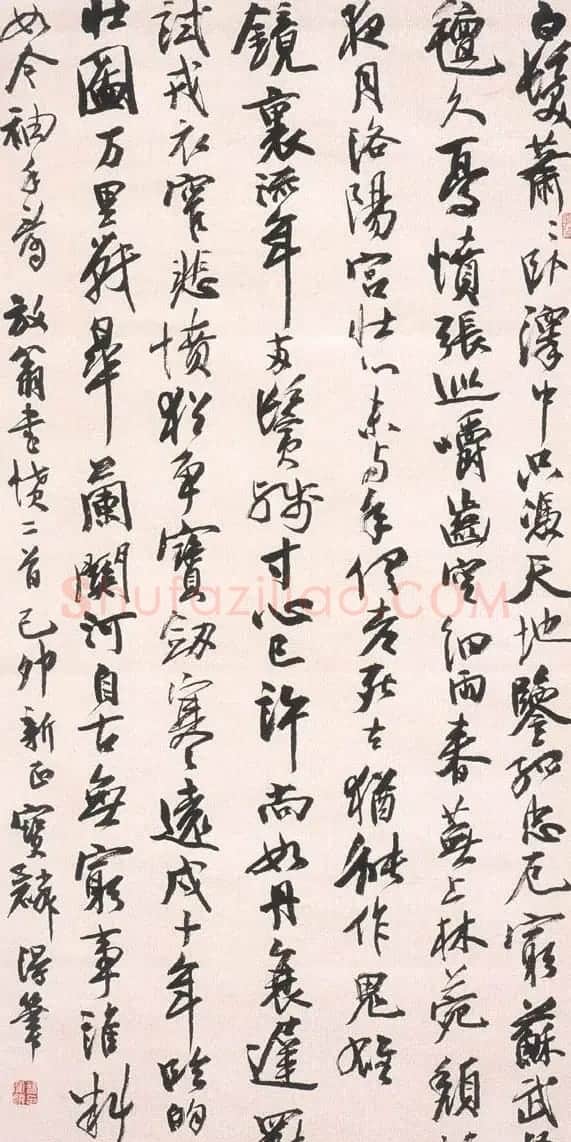 白髮蕭〻臥澤中只憑天地鑒孤忠厄窮蘇武
氈久憂憤張巡嚼齒空細雨春蕪上林苑頹
夜月洛陽宮壯心未與年俱老死去猶能作鬼雄
鏡裏流年兩鬢殘寸心已許尚如丹衰遲罷
試戎衣窄悲憤猶爭寶劍寒遠戍十年臨的
壯圖万里戰皋蘭關河自古無窮事誰料
如今袖手看 放翁書憤二首 己卯新正寶麟得筆
Shufaziliao.COM